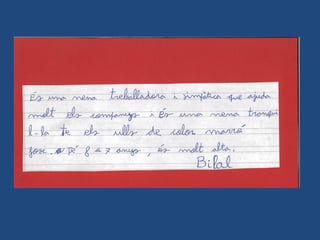 És una nena treballadora i simpàtica que ajuda
molt els companys i És una nena tranqui
l-la Te els ulls de color marró
fosc. Té 8 anys, és molt alta.
Bilal